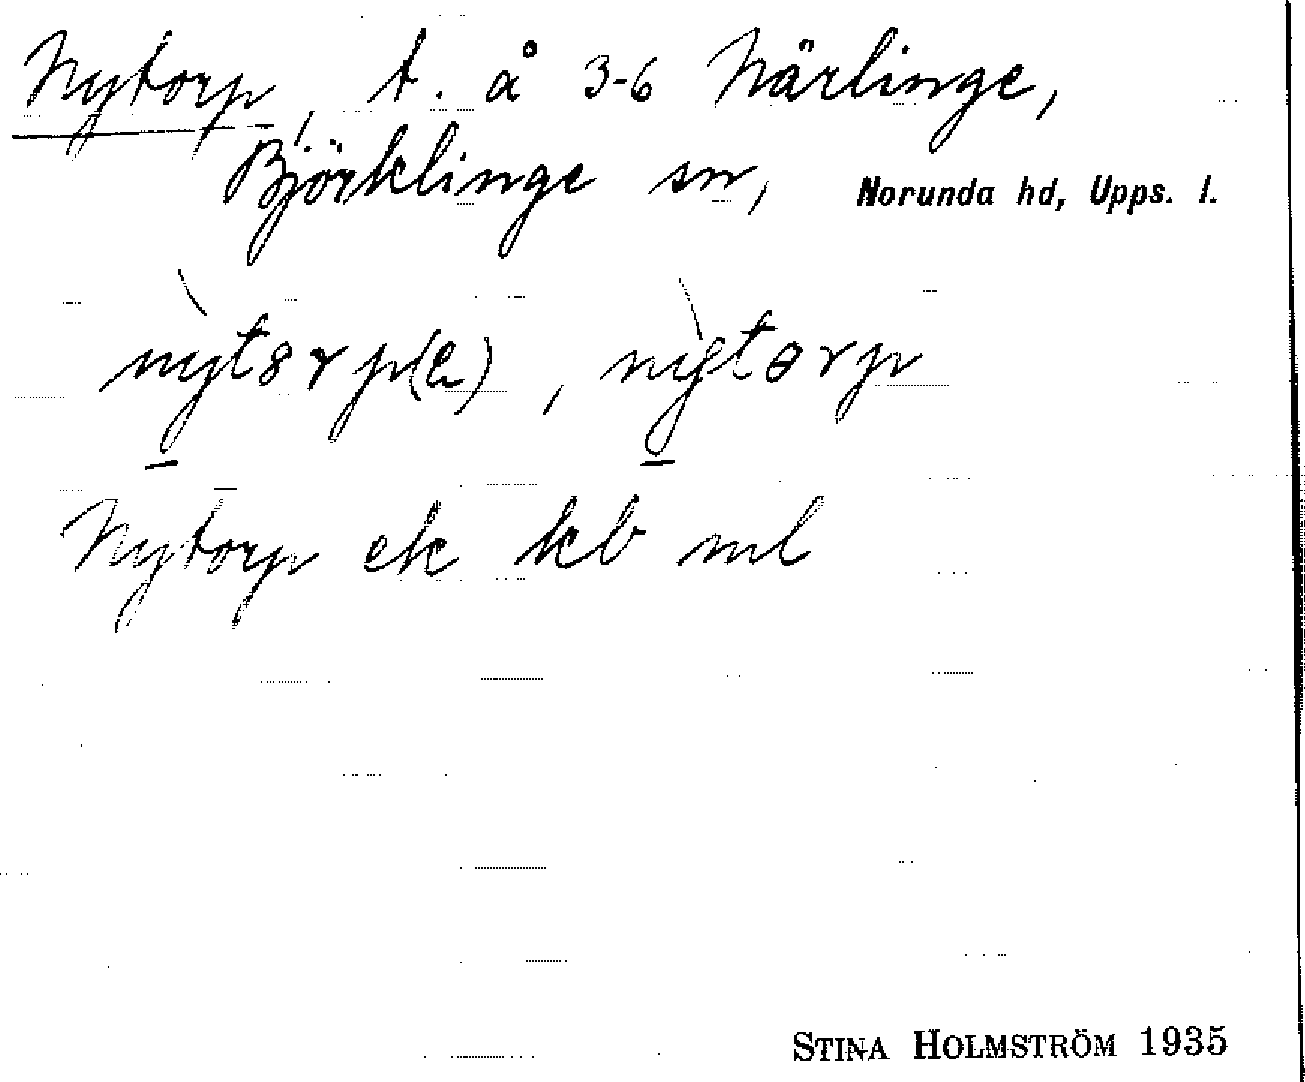 Nytorp, t. å 3-6 Närlinge,
Björklinge sn, Norunda hd, Upps. l.
Nytorp ek kb ml
STINA HOLMSTRÖM 1935